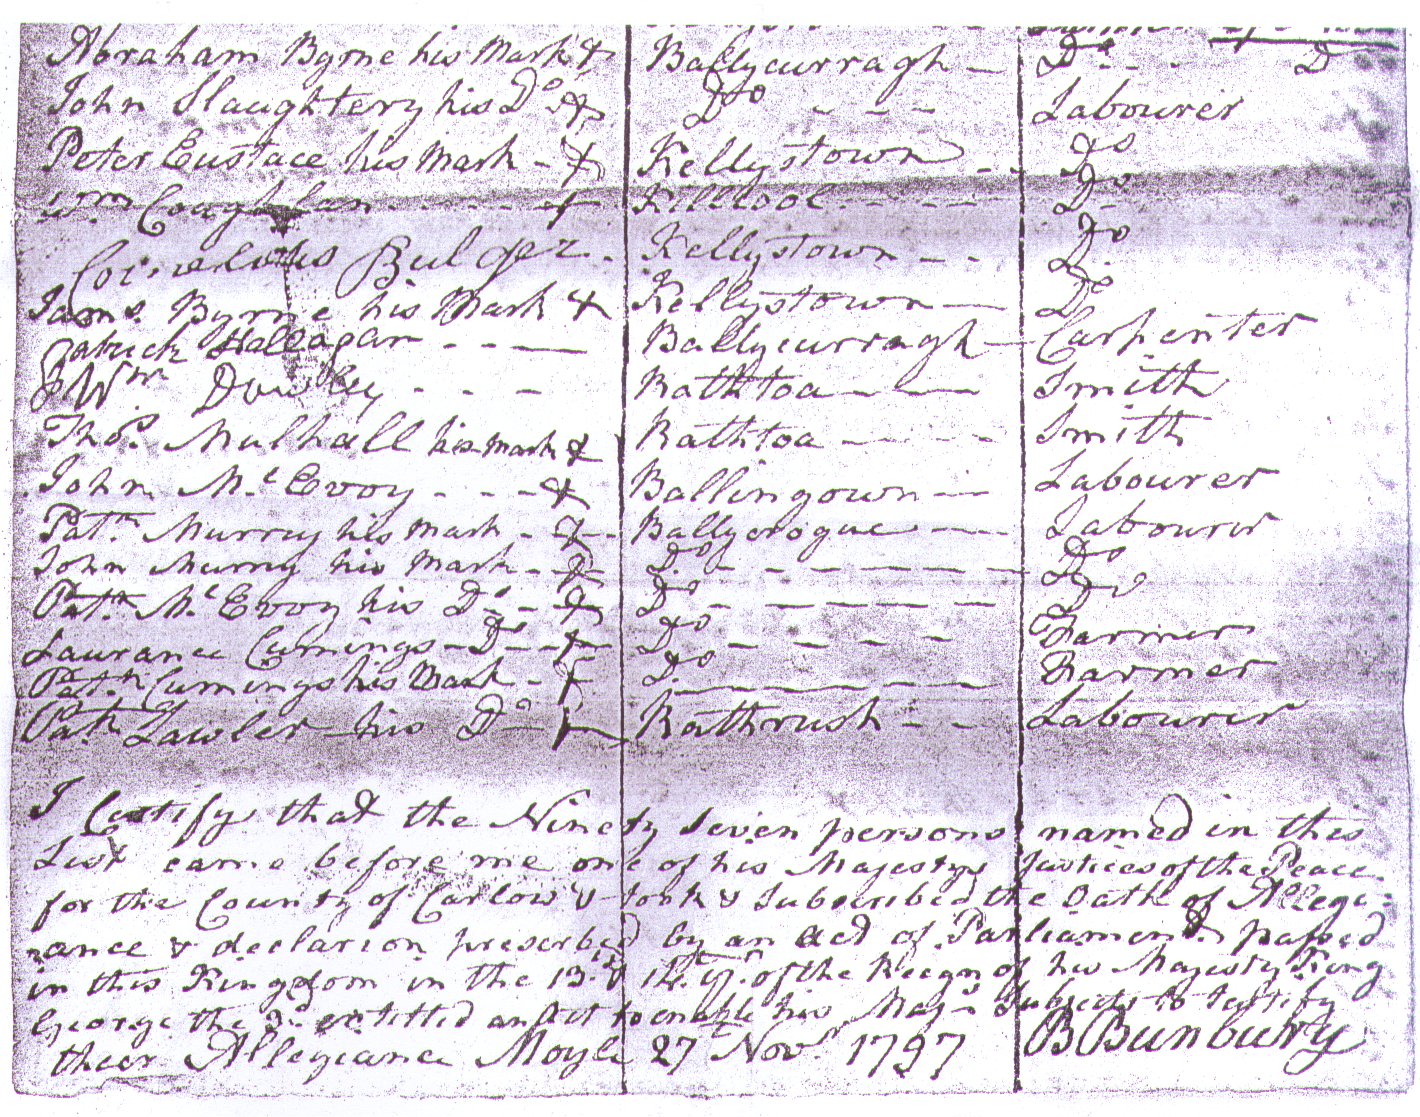 Abraham Byrne his Mark + Ballycurragh — Do - - - D
John Slaughtery his Do + Do - - - Labourer
Peter Eustace his Mark - + Kellystown - - Do
Wm Coughlan - - - - + Killcool - - - - Do -
Cornelius Bulger - Kellystown - - Do
Jams. Byrne his Mark + Kellystown — Do
Patrick Hallagan - - — Ballycurragh — Carpenter
Wm Dowley - - - Rathtoa — — Smith
Thos. Mulhall his mark + Rathtoa — - - - Smith
John McEvoy - - - + Ballingown — Labourer
Patk. Murray his Mark - + - Ballycrogue — Labourer
John Murray his Mark - - + Do - - — — — Do
Patk. McEvoy his Do - - + Do - — — — — Do
Laurance Cumings - Do - - + Do — - - - Farmer
Patk. Cumings his Mark - + Do — — — — Farmer
Patk Lawler - his Do - + Rathrush - - Labourer
I Certify that the Ninety Seven persons named in this
List came before me one of his Majestys Justices of the Peace
for the County of Carlow & took & Subscribed the Oath of Allegi-
ance & declarion prescribed by an act of Parliament passed
in this Kingdom in the 13th & 14th yr. of the Reign of his Majesty King
George the 3d entitled an Act to enable his Maj-s Subjects to testify
their Allegiance Moyle 27 Novr 1797 B Bunbury